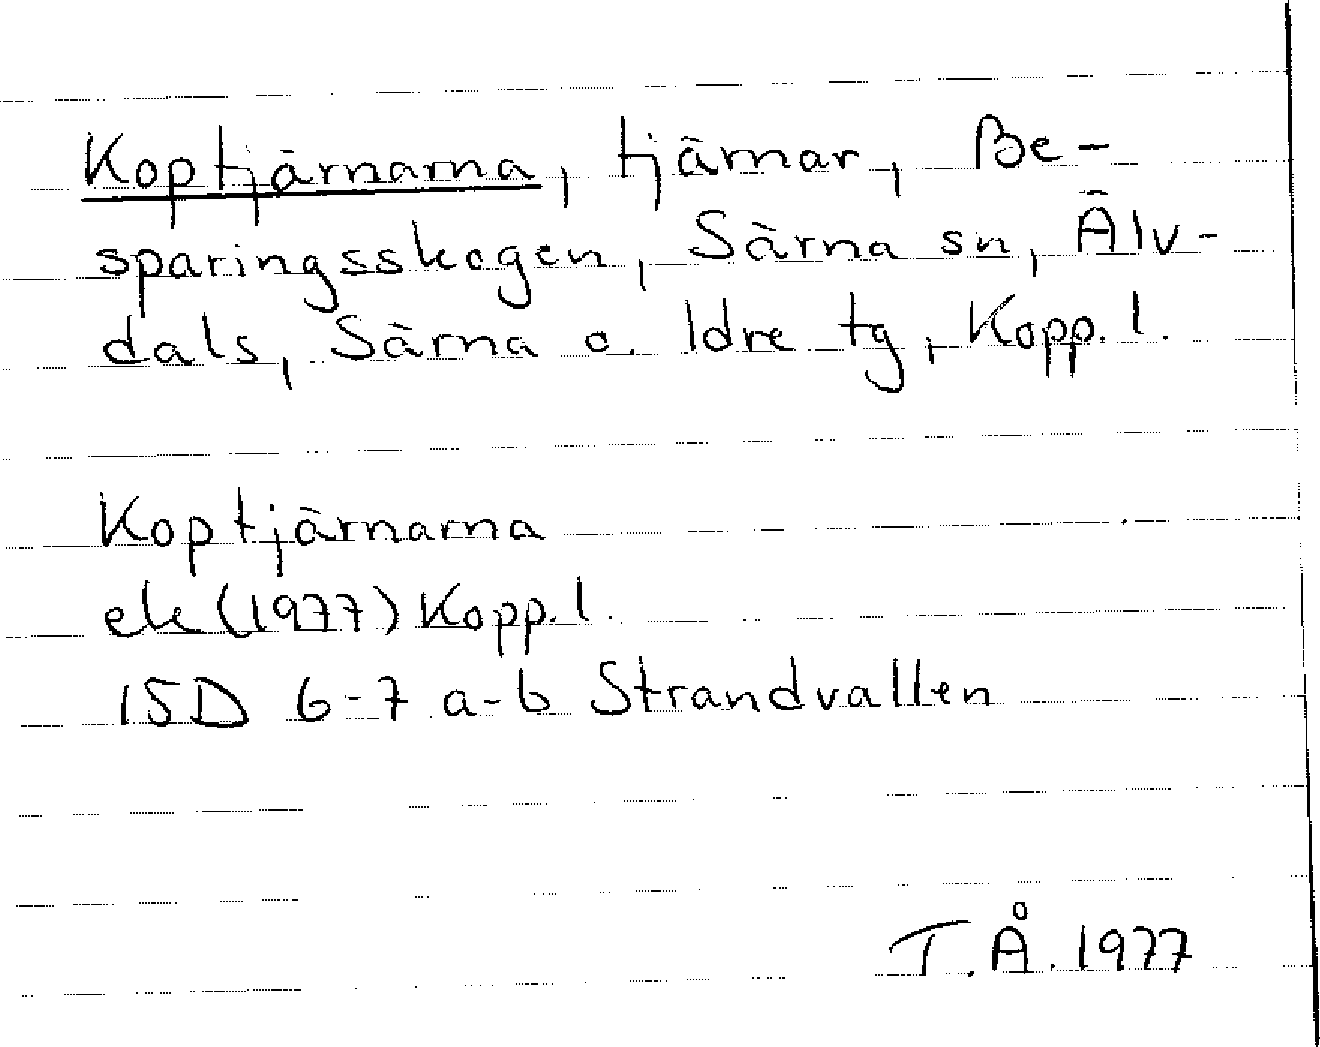 Koptjärnarna, tjärnar, Be-
sparingsskogen, Särna sn, Älv-
dals, Särna o. Idre tg, Kopp. l.
Koptjärnarna
ek (1977) Kopp. l.
15D 6-7 a-b Strandvallen
T.Å. 1977